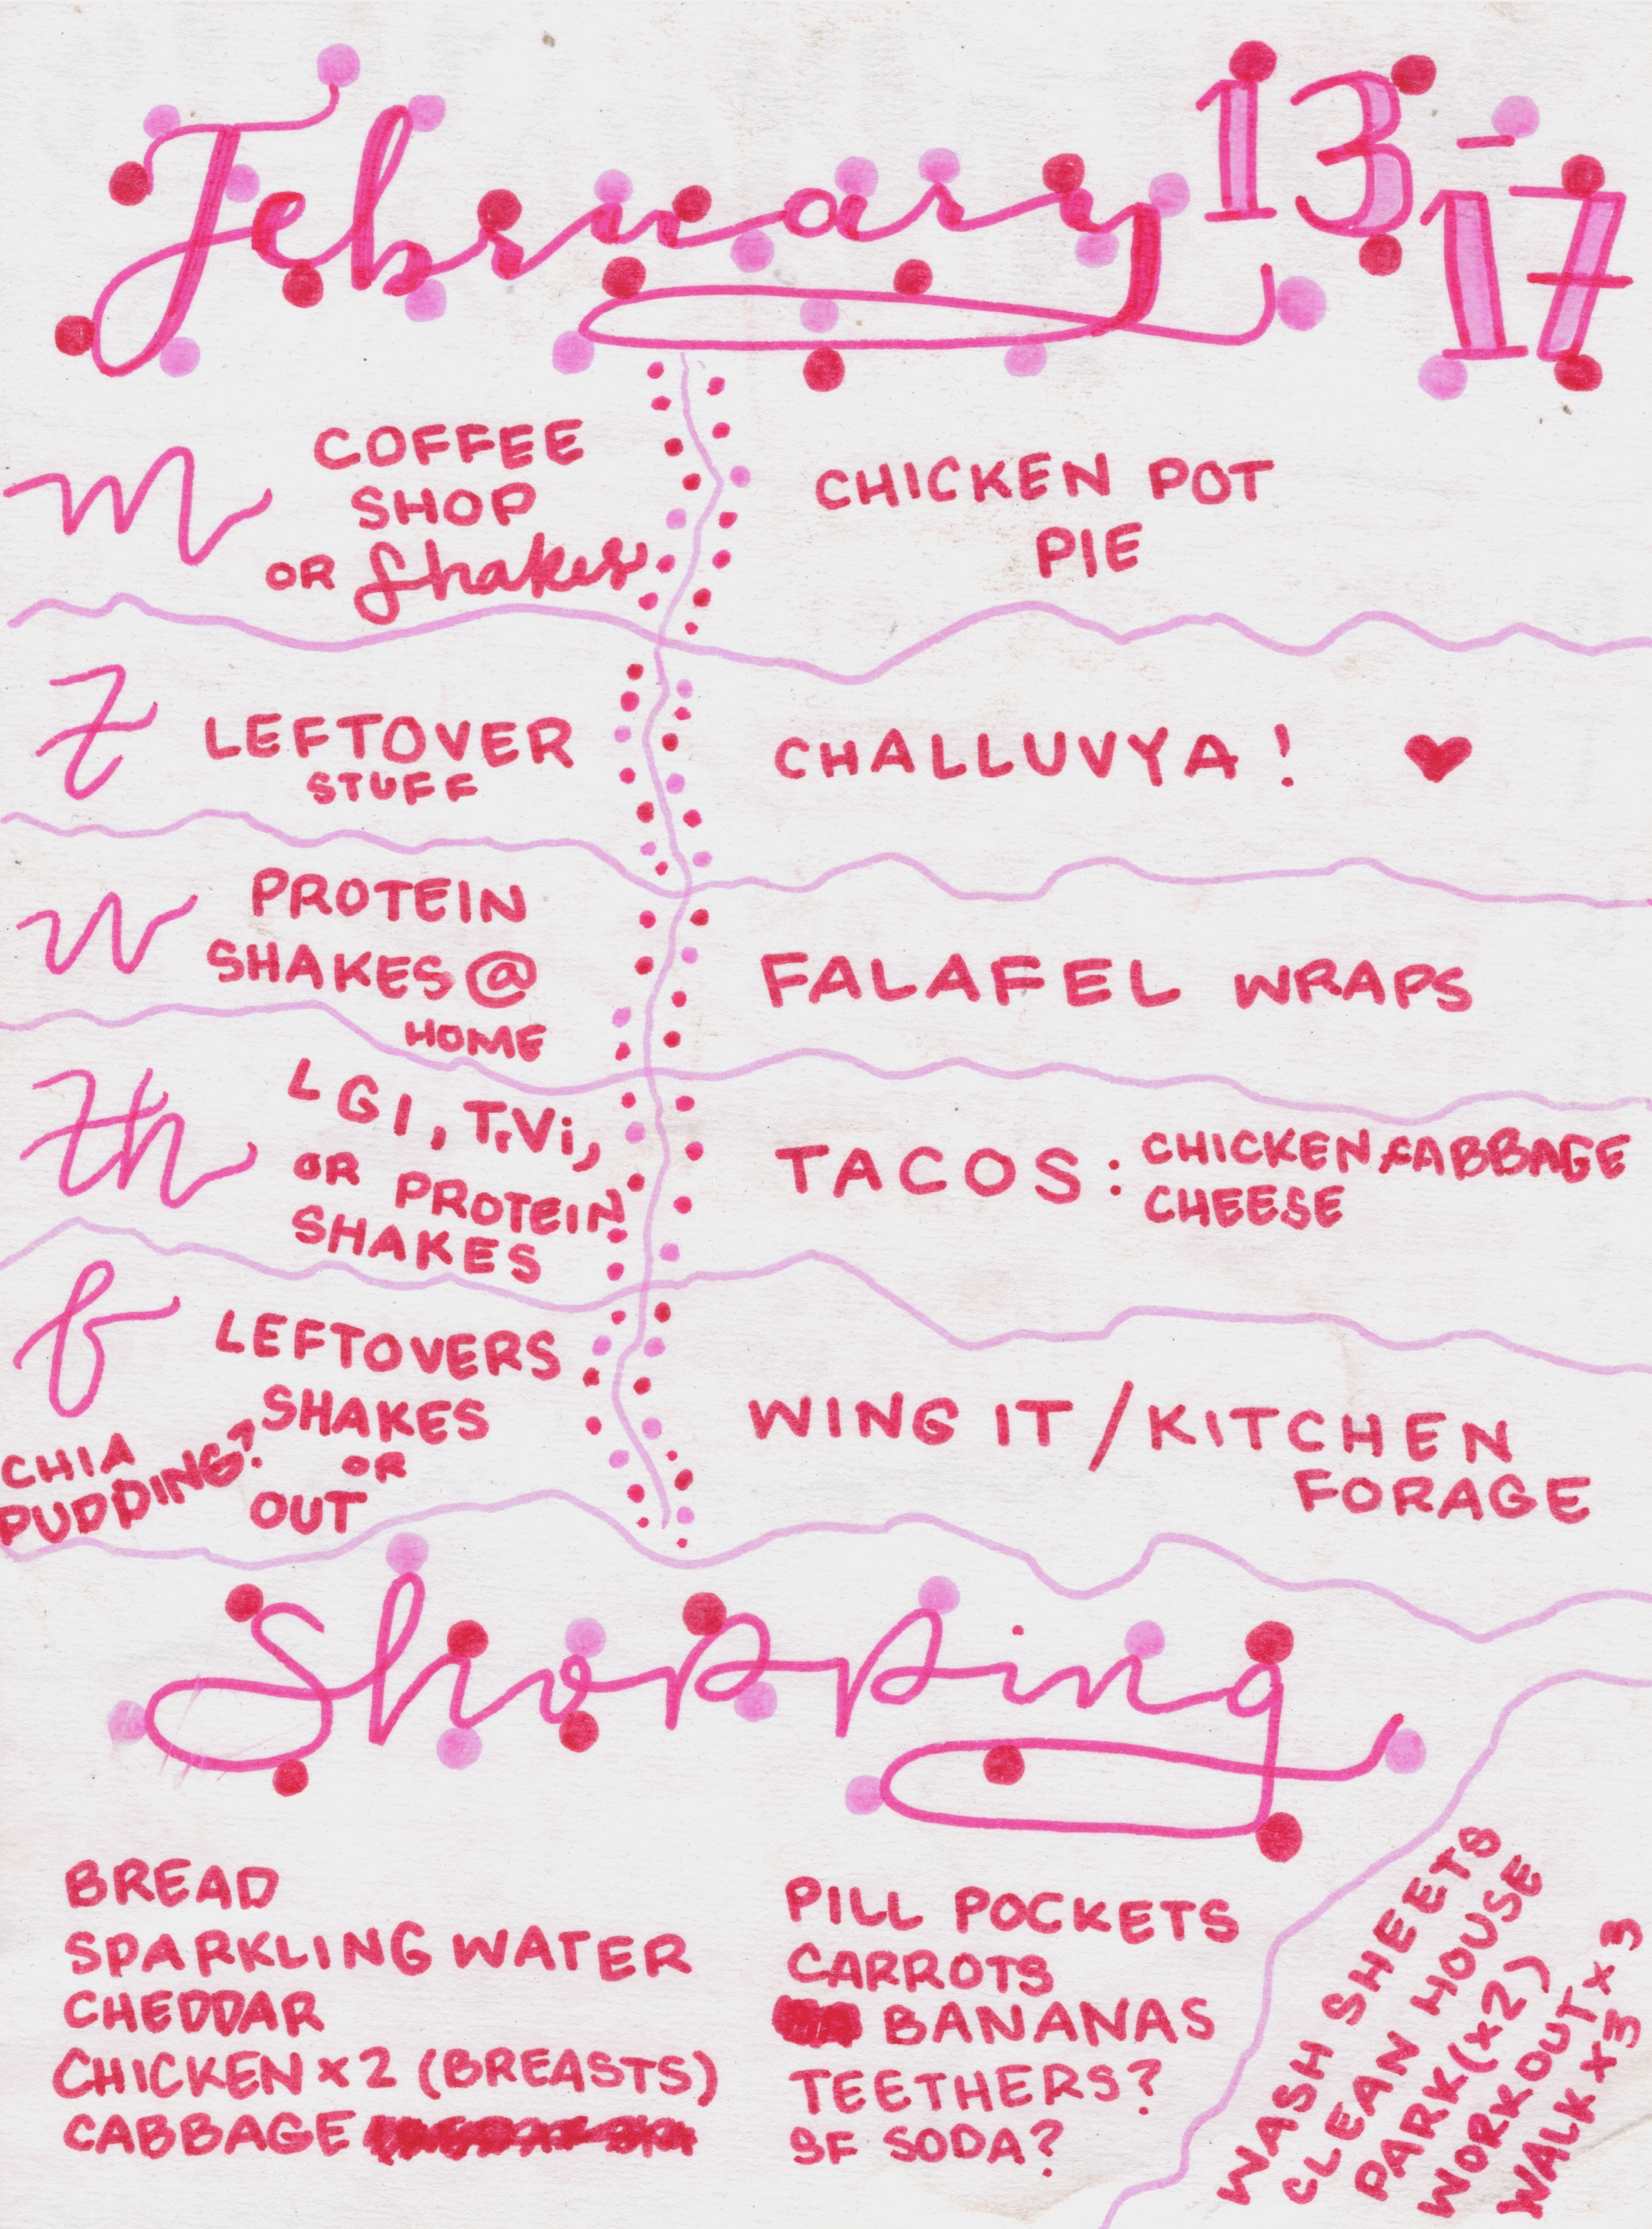 February 13-
17
M
COFFEE
SHOP
OR Shakes
CHICKEN POT
PIE
T
LEFTOVER
STUFF
CHALLUVYA! ♥
W
PROTEIN
SHAKES @
HOME
FALAFEL WRAPS
Th
LGI, TrVi,
OR PROTEIN
SHAKES
TACOS: CHICKEN, CABBAGE
CHEESE
F
LEFTOVERS
SHAKES
OR
OUT
CHIA
PUDDING?
WING IT / KITCHEN
FORAGE
Shopping
BREAD
SPARKLING WATER
CHEDDAR
CHICKEN x 2 (BREASTS)
CABBAGE
PILL POCKETS
CARROTS
BANANAS
TEETHERS?
SF SODA?
WASH SHEETS
CLEAN HOUSE
PARK (x2)
WORKOUT x 3
WALK x 3